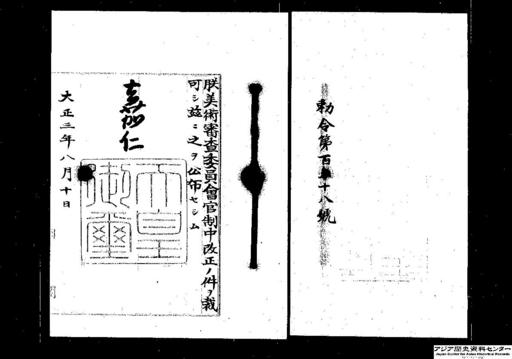 勅令第百
十八號
朕美術審査委員會官制中改正ノ件ヲ裁
可シ茲ニ之ヲ公布セシム
嘉仁
天皇
御璽
大正三年八月十日
アジア歴史資料センター
Japan Center for Asian Historical Records